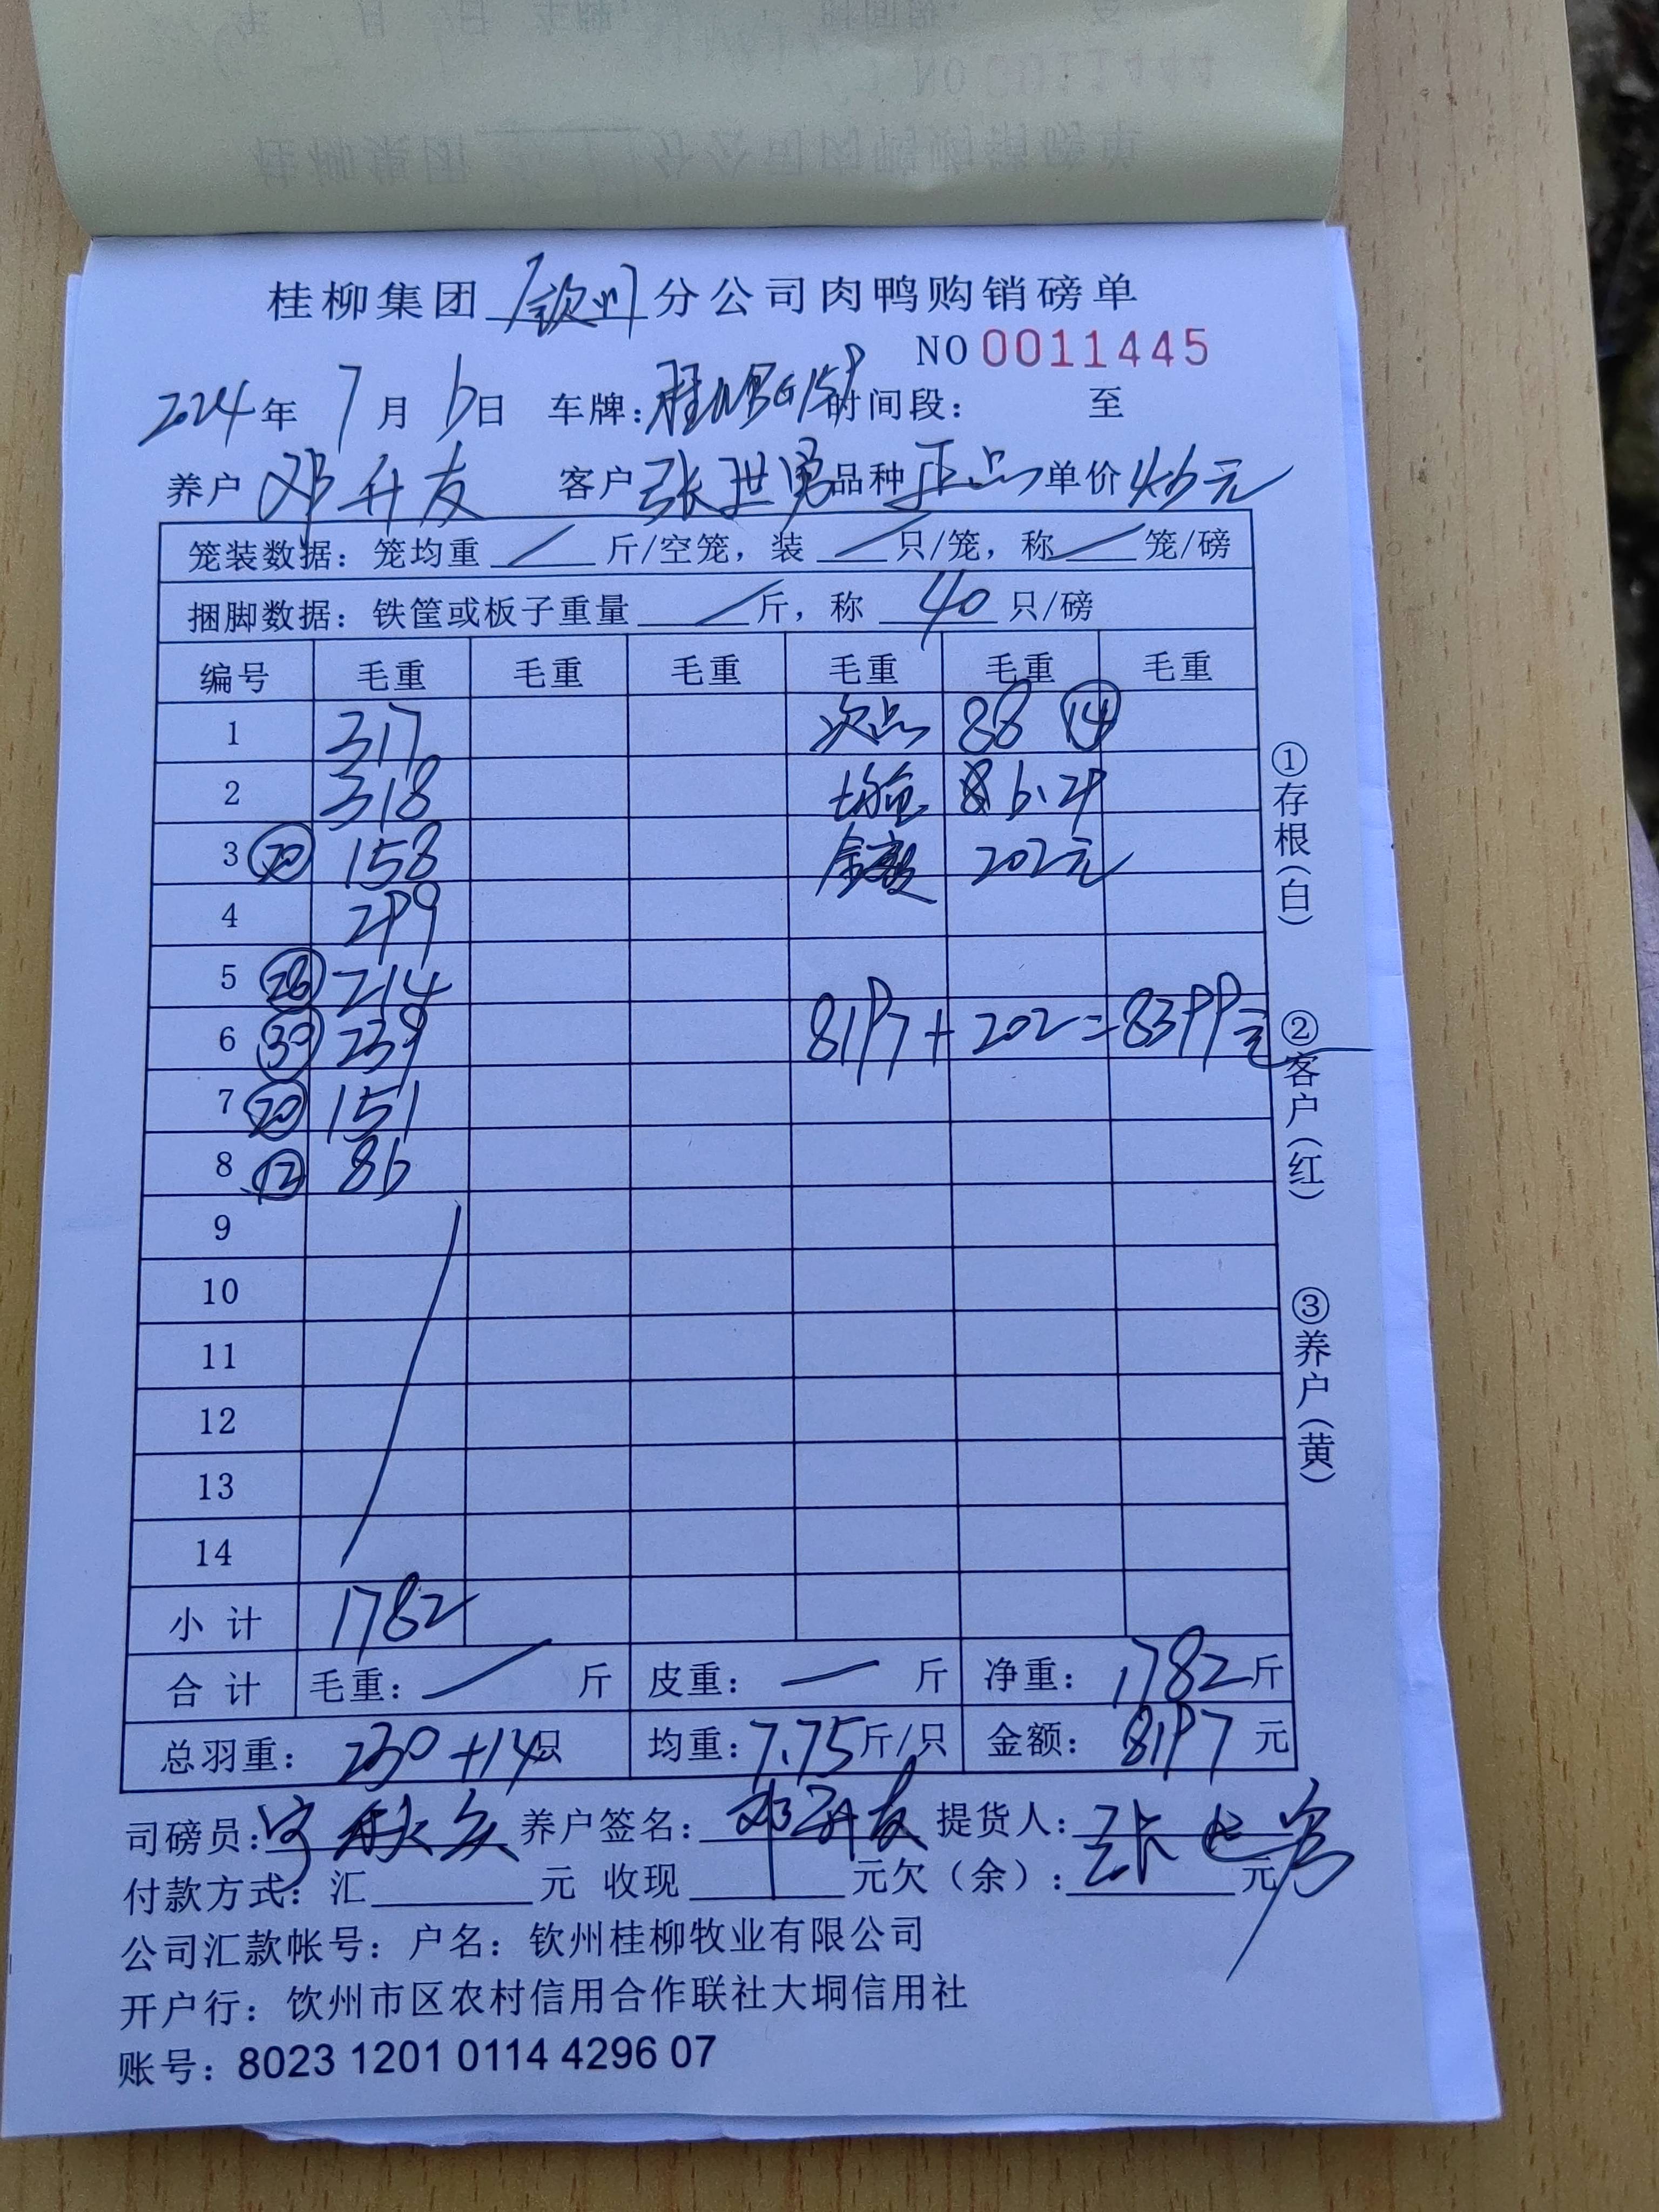 桂柳集团 钦州 分公司肉鸭购销磅单
NO 0011445
2024年 7月 6日 车牌: 时间段: 至
养户 邓升友 客户 张世勇 品种 正品 单价 4.6元
笼装数据: 笼均重 / 斤/空笼, 装 / 只/笼, 称 / 笼/磅
捆脚数据: 铁筐或板子重量 / 斤, 称 40 只/磅
编号 毛重 毛重 毛重 毛重 毛重 毛重
1 317 次品 88 ⑭
2 318 均重
3 ⑳ 158 金额 202元
4 299
5 ㉘ 214
6 ㉚ 239 8197+202=8399元
7 ⑳ 151
8 ⑫ 86
9
10
11
12
13
14
小计 1782
合计 毛重: / 斤 皮重: — 斤 净重: 1782斤
总羽重: 230+14只 均重: 7.75斤/只 金额: 8197 元
司磅员: 养户签名: 邓升友 提货人: 张世勇
付款方式: 汇 元 收现 元欠(余): 元
公司汇款帐号: 户名: 钦州桂柳牧业有限公司
开户行: 饮州市区农村信用合作联社大垌信用社
账号: 8023 1201 0114 4296 07
①存根(白)
②客户(红)
③养户(黄)